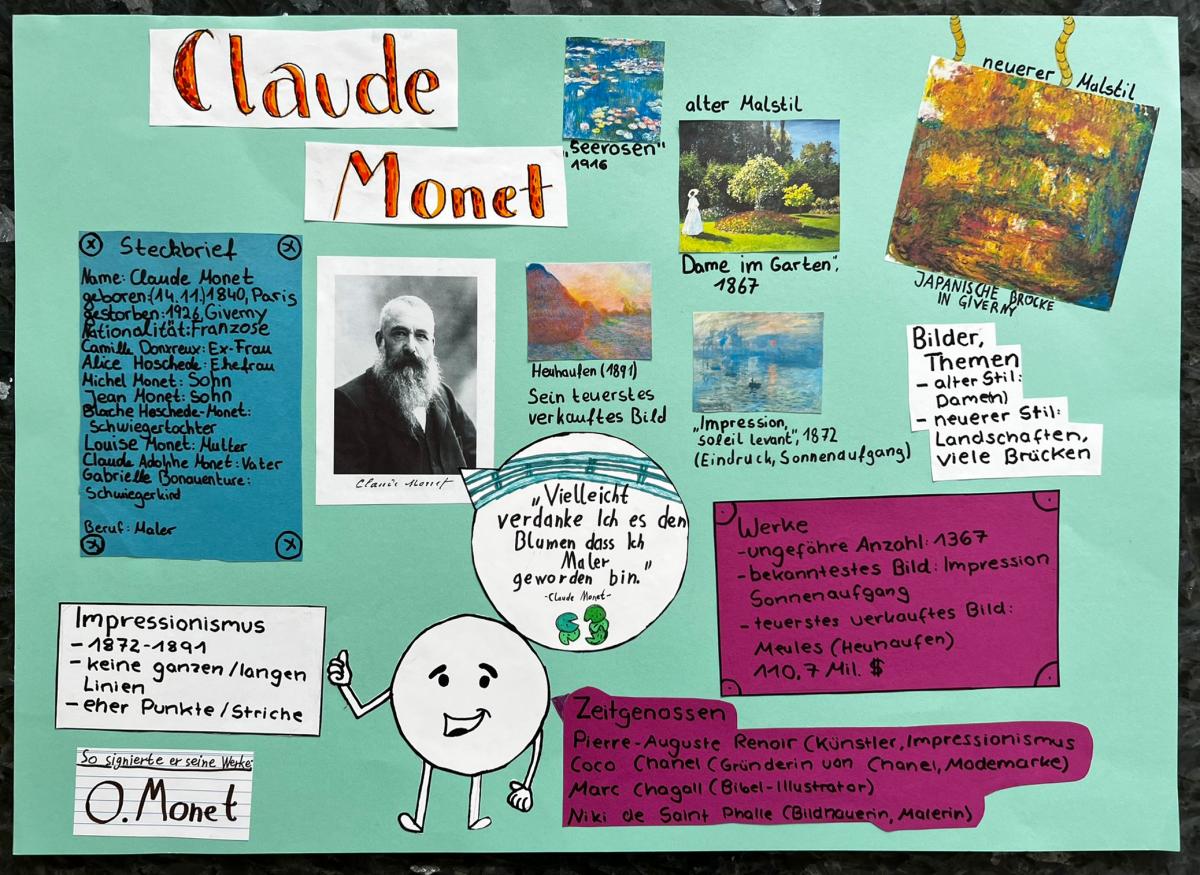 Claude
Monet
„Seerosen"
1916
alter Malstil
„Dame im Garten",
1867
neuerer Malstil
JAPANISCHE BRÜCKE
IN GIVERNY
Steckbrief
Name: Claude Monet
geboren:(14.11.)1840, Paris
gestorben:1926, Giverny
Nationalität:Franzose
Camille Donxreux: Ex-Frau
Alice Hoschede: Ehefrau
Michel Monet: Sohn
Jean Monet: Sohn
Blache Heschede-Monet:
Schwiegertochter
Louise Monet: Mutter
Claude Adolphe Monet: Vater
Gabrielle Bonaventure:
Schwiegerkind
Beruf: Maler
Claude Monet
Heuhaufen (1891)
Sein teuerstes
verkauftes Bild
„Impression,
soleil levant", 1872
(Eindruck, Sonnenaufgang)
Bilder,
Themen
- alter Stil:
Dame(n)
- neuerer Stil:
Landschaften,
viele Brücken
„Vielleicht
verdanke Ich es den
Blumen dass Ich
Maler
geworden bin."
-Claude Monet-
Werke
-ungefähre Anzahl: 1367
-bekanntestes Bild: Impression
Sonnenaufgang
- teuerstes verkauftes Bild:
Meules (Heuhaufen)
110,7 Mil. $
Impressionismus
- 1872-1891
- keine ganzen/langen
Linien
- eher Punkte/Striche
So signierte er seine Werke:
O. Monet
Zeitgenossen
Pierre-Auguste Renoir (Künstler, Impressionismus
Coco Chanel (Gründerin von Chanel, Modemarke)
Marc Chagall (Bibel-Illustrator)
Niki de Saint Phalle (Bildhauerin, Malerin)